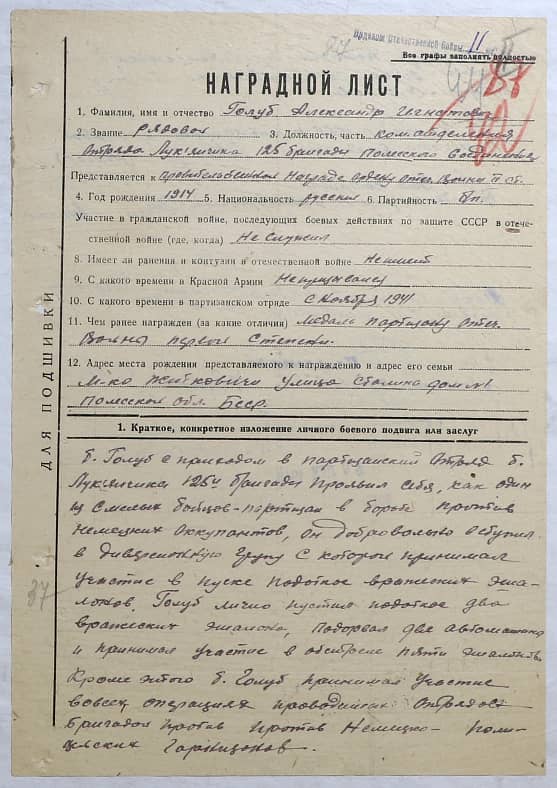 Орденом Отечественной Войны II
Все графы заполнять полностью
НАГРАДНОЙ ЛИСТ
1. Фамилия, имя и отчество Голуб Александр Игнатович
2. Звание рядовой 3. Должность, часть ком. отделения
отряда Лукьянчика 125 бригады Полесского соединения
Представляется к правительственной награде ордену Отеч. Войны II ст.
4. Год рождения 1914 5. Национальность русский 6. Партийность б/п.
Участие в гражданской войне, последующих боевых действиях по защите СССР в отече-
ственной войне (где, когда) Не служил
8. Имеет ли ранения и контузии в отечественной войне Не имеет
9. С какого времени в Красной Армии
10. С какого времени в партизанском отряде с ноября 1941
11. Чем ранее награжден (за какие отличия) Медаль партизану Отеч.
Войны первой степени.
12. Адрес места рождения представляемого к награждению и адрес его семьи
М-ко Житковичи улица Сталина дом №1
Полесской обл. БССР.
ДЛЯ ПОДШИВКИ
1. Краткое, конкретное изложение личного боевого подвига или заслуг
т. Голуб с приходом в партизанский отряд т.
Лукьянчика 125й бригады проявил себя, как один
из смелых бойцов-партизан в борьбе против
немецких оккупантов, он добровольно вступил
в диверсионную группу с которой принимал
участие в пуске подоткос вражеских эша-
лонов. Голуб лично пустил подоткос два
вражеских эшалона, подорвал две автомашины
и принимал участие в обстреле пяти эшалонов.
Кроме этого т. Голуб принимал участие
вовсех операциях проводимых отрядом
бригадой против против немецко- поли-
цейских гарнизонов.
37